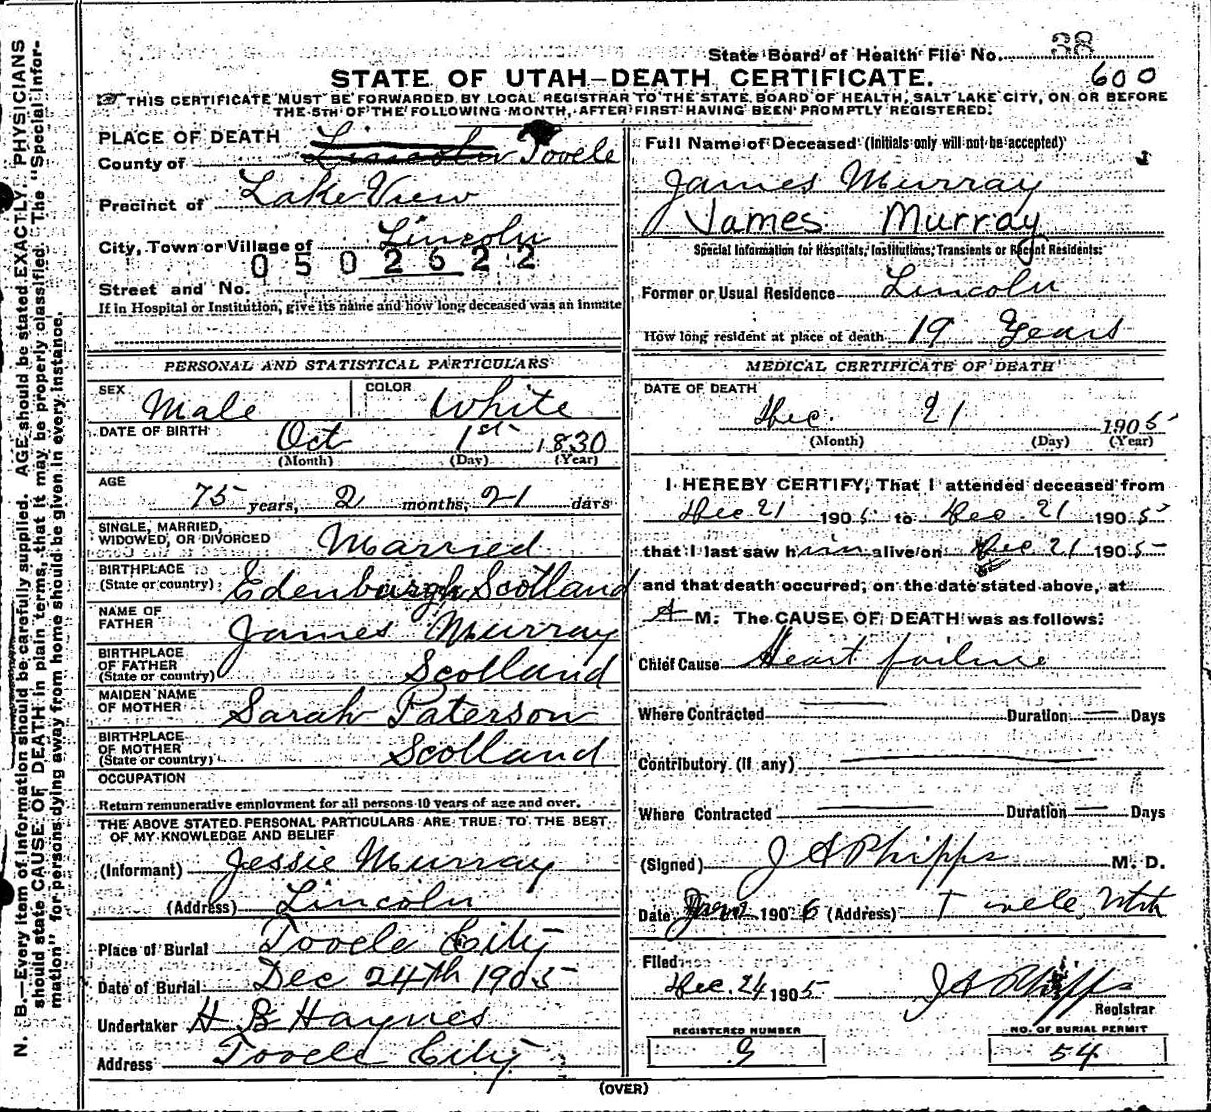 State Board of Health File No. 38
600
STATE OF UTAH—DEATH CERTIFICATE.
THIS CERTIFICATE MUST BE FORWARDED BY LOCAL REGISTRAR TO THE STATE BOARD OF HEALTH, SALT LAKE CITY, ON OR BEFORE
THE 5TH OF THE FOLLOWING MONTH, AFTER FIRST HAVING BEEN PROMPTLY REGISTERED.
PLACE OF DEATH
County of Lincoln Tooele
Precinct of Lake View
City, Town or Village of Lincoln
0502622
Street and No.
If in Hospital or Institution, give its name and how long deceased was an inmate
Full Name of Deceased (Initials only will not be accepted)
James Murray
James Murray
Special Information for Hospitals, Institutions, Transients or Recent Residents:
Former or Usual Residence Lincoln
How long resident at place of death 19 Years
PERSONAL AND STATISTICAL PARTICULARS
SEX Male
COLOR White
DATE OF BIRTH Oct 1st 1830
(Month) (Day) (Year)
AGE
75 years, 2 months, 21 days
SINGLE, MARRIED,
WIDOWED, OR DIVORCED Married
BIRTHPLACE
(State or country) Edenburgh Scotland
NAME OF
FATHER James Murray
BIRTHPLACE
OF FATHER
(State or country) Scotland
MAIDEN NAME
OF MOTHER Sarah Paterson
BIRTHPLACE
OF MOTHER
(State or country) Scotland
OCCUPATION
Return remunerative employment for all persons 10 years of age and over.
THE ABOVE STATED PERSONAL PARTICULARS ARE TRUE TO THE BEST
OF MY KNOWLEDGE AND BELIEF
(Informant) Jessie Murray
(Address) Lincoln
Place of Burial Tooele City
Date of Burial Dec 24th 1905
Undertaker H B Haynes
Address Tooele City
MEDICAL CERTIFICATE OF DEATH
DATE OF DEATH
Dec. 21 1905
(Month) (Day) (Year)
I HEREBY CERTIFY, That I attended deceased from
Dec 21 1905 to Dec. 21 1905
that I last saw him alive on Dec 21 1905
and that death occurred, on the date stated above, at
A M. The CAUSE OF DEATH was as follows:
Chief Cause Heart failure
Where Contracted — Duration — Days
Contributory (if any) —
Where Contracted — Duration — Days
(Signed) J A Phipps M. D.
Date 1906 (Address) Tooele, Utah
Filed
Dec. 24 1905 J A Phipps
Registrar
REGISTERED NUMBER
9
NO. OF BURIAL PERMIT
54
(OVER)
N. B.—Every item of information should be carefully supplied. AGE should be stated EXACTLY. PHYSICIANS
should state CAUSE OF DEATH in plain terms, that it may be properly classified. The "Special Infor-
mation" for persons dying away from home should be given in every instance.